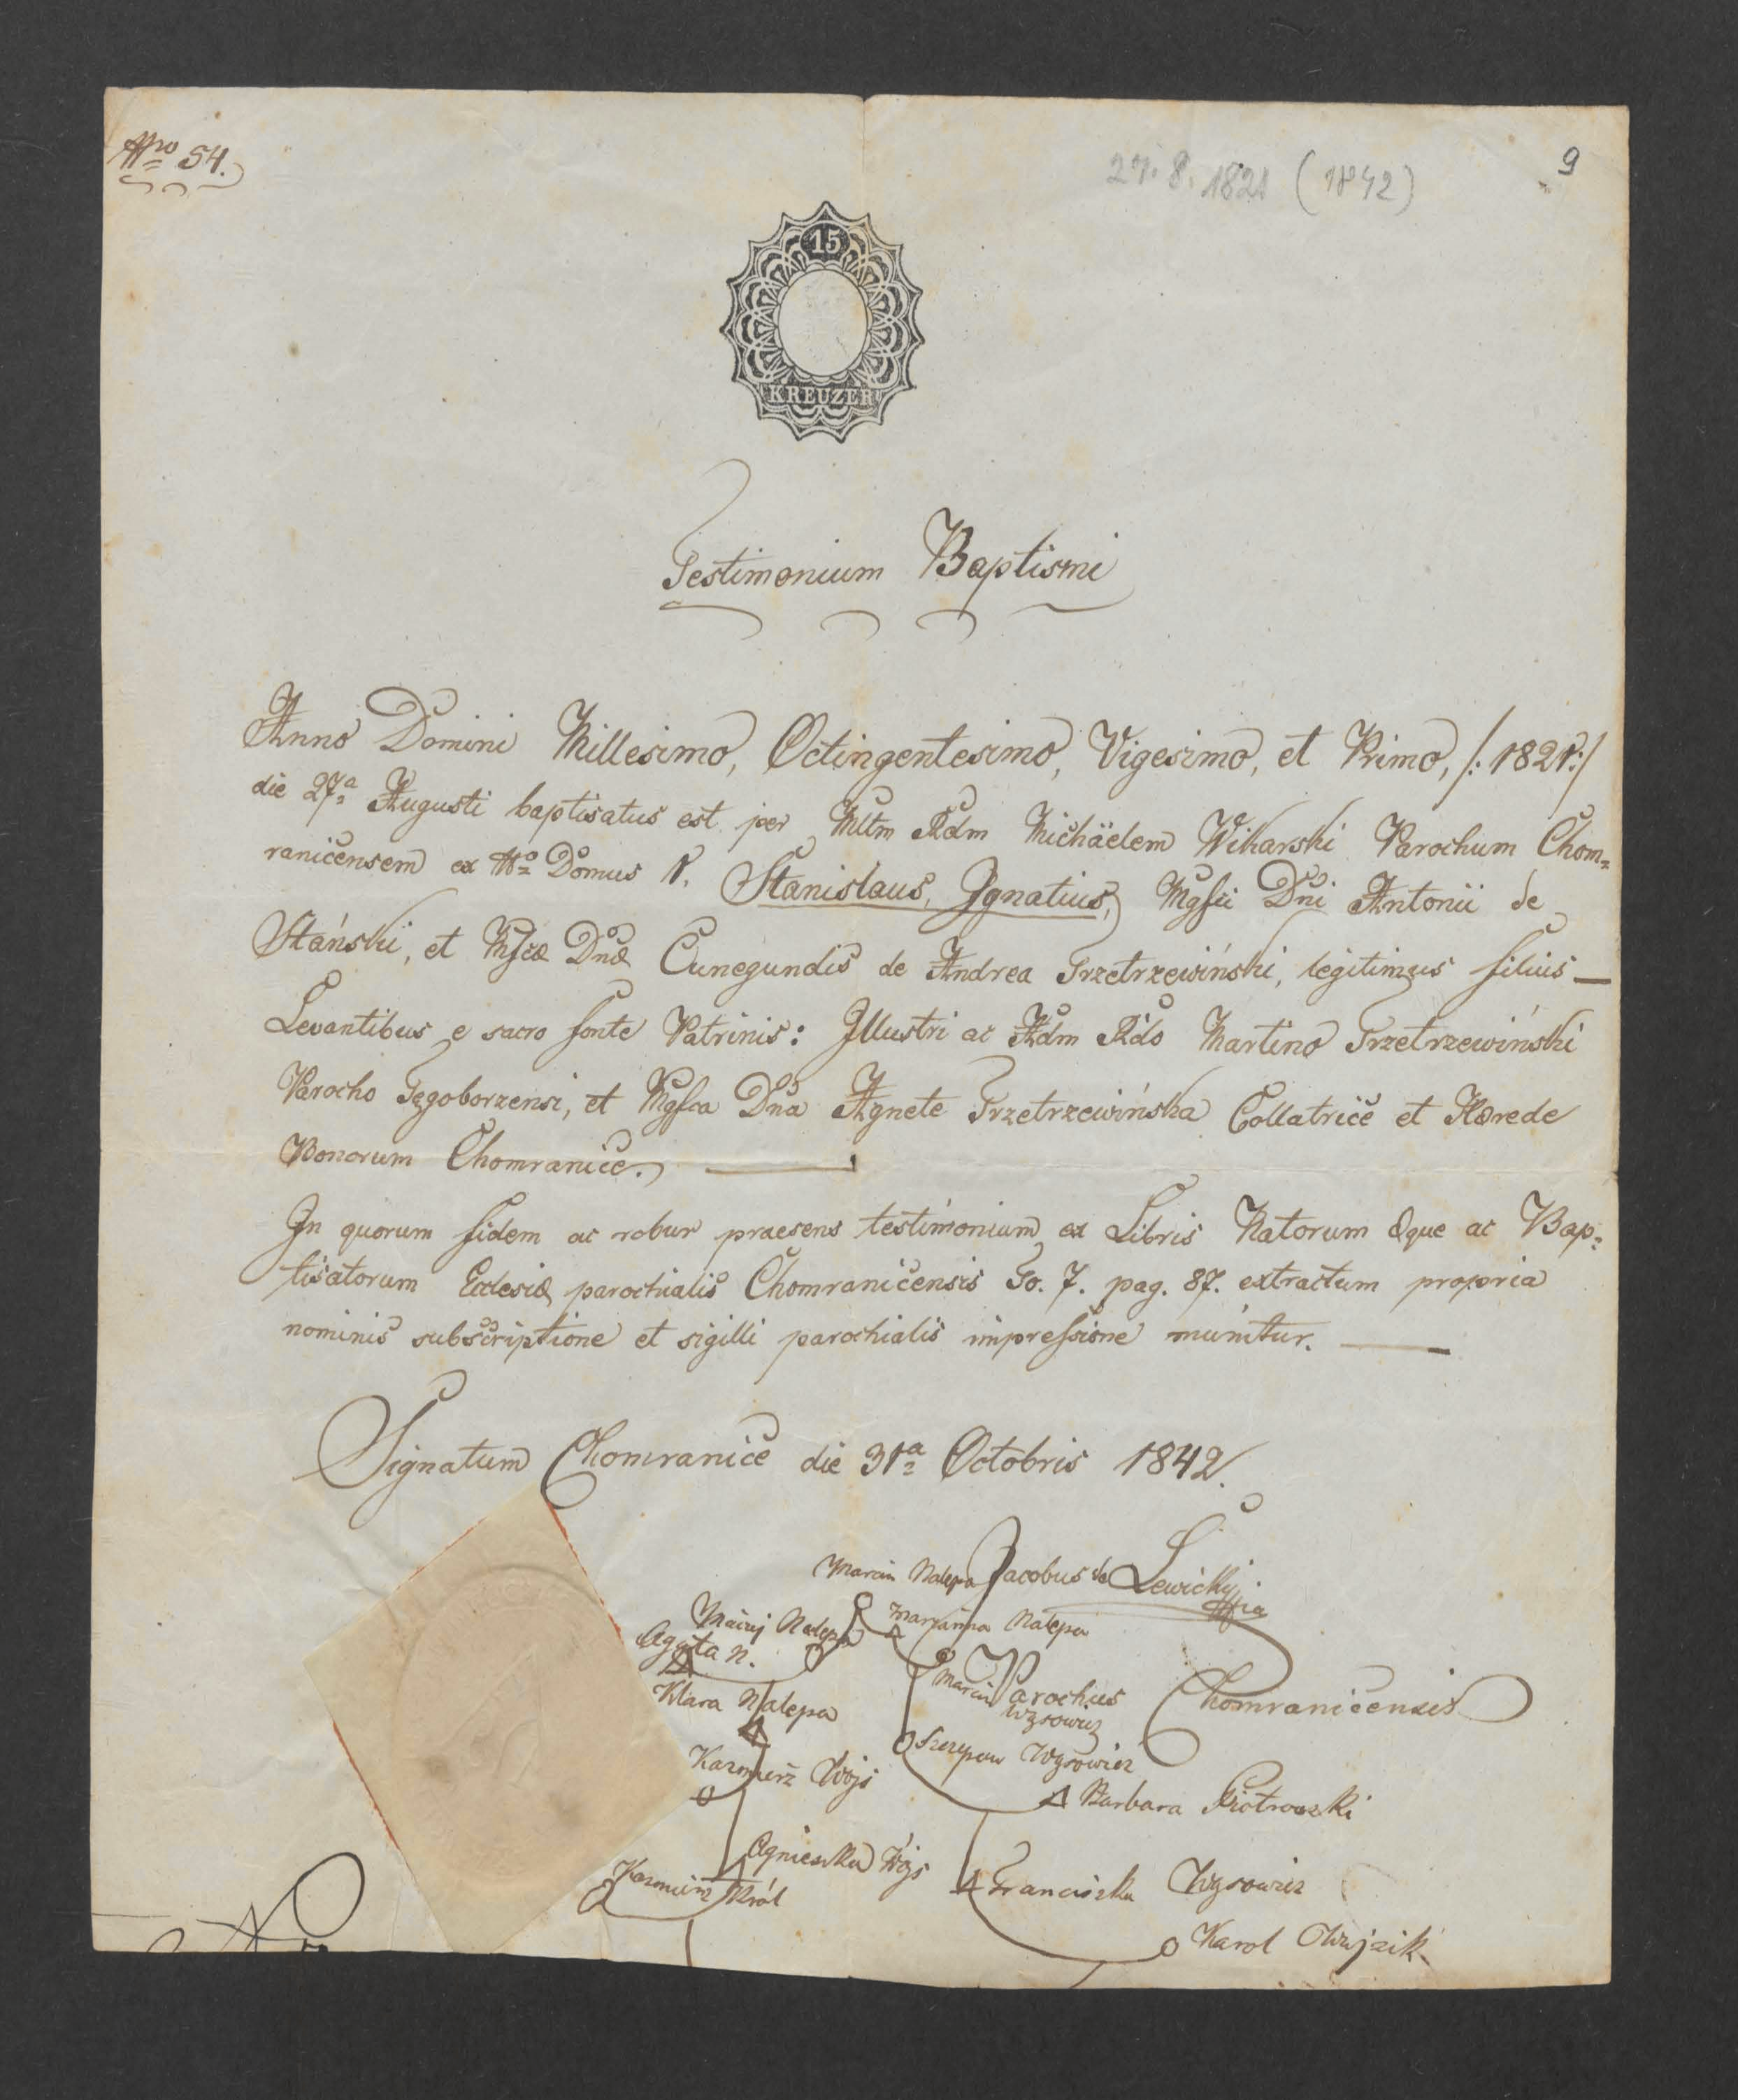 Nro 54.
27. 8. 1821 (1842)
9
15
KREUZER
Testimonium Baptismi
Anno Domini Millesimo, Octingentesimo, Vigesimo, et Primo, /: 1821 :/
die 27ª Augusti baptisatus est per Mltm Rdm Michäelem Wikarski Parochum Chom=
ranicensem ex Nº Domus 1. Stanislaus, Ignatius, Mgfii Dni Antonii de
Stański, et Mgfcæ Dnæ Cunegundis de Andrea Trzetrzewiński, legitimus filius —
Levantibus e sacro fonte Patrinis: Illustri ac Adm Rdo Martino Trzetrzewiński
Parocho Tęgoborzensi, et Mgfca Dna Agnete Trzetrzewińska Collatrice et Hærede
Bonorum Chomranice. —
In quorum fidem ac robur praesens testimonium ex Libris Natorum æque ac Bap=
tisatorum Ecclesiæ parochialis Chomranicensis To. 7. pag. 87. extractum propria
nominis subscriptione et sigilli parochialis impressione munitur. —
Signatum Chomranice die 31ª Octobris 1842.
Marcin Nalepa Jacobus de Lewicki
Maciej Nalepa Maryanna Nalepa
Agata N.
Marcin Parochus Chomranicensis
Klara Nalepa
Wąsowicz
Szczepan Wąsowicz
Kazmierz Wójs
Barbara Piotrowski
Agnieszka Wójs
Kazmierz Król
Franciszka Wąsowicz
Karol Owujzik